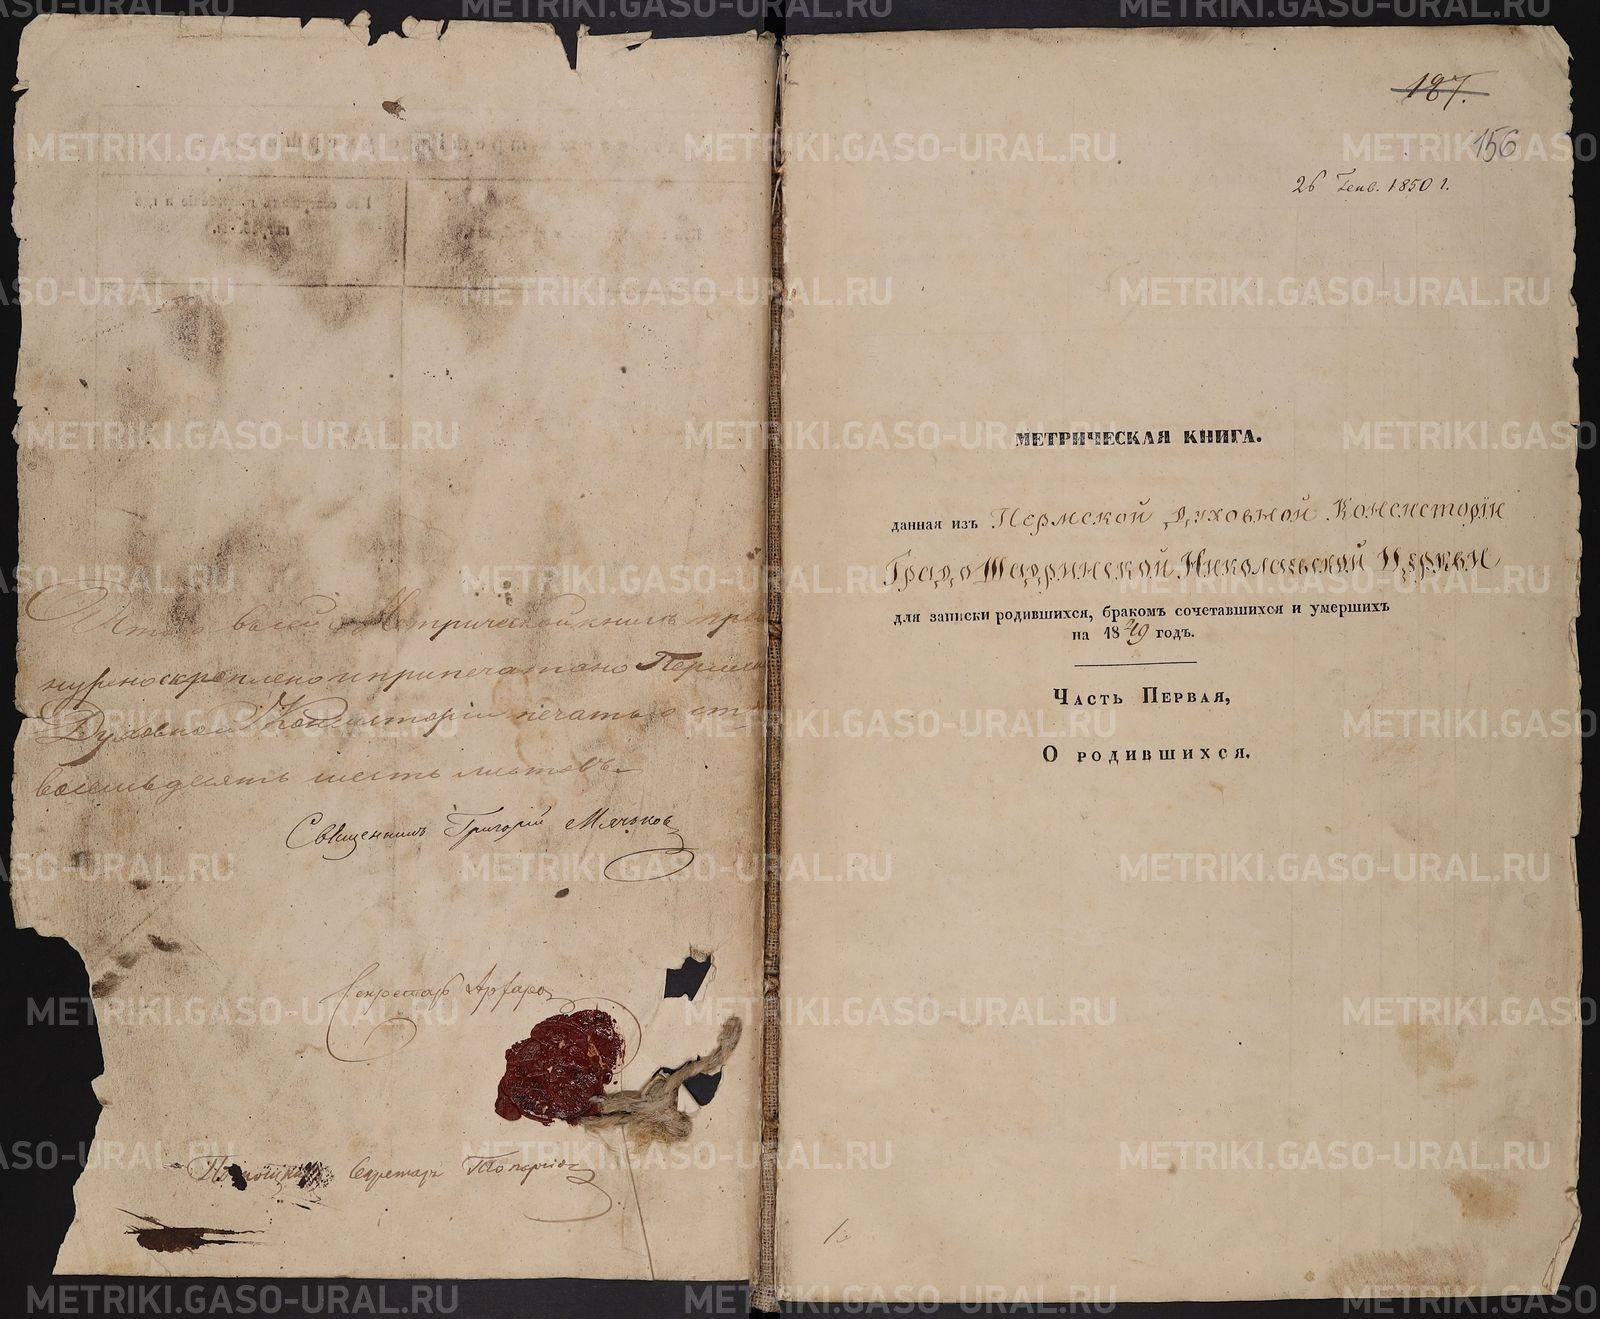 Итого во всей Метрической книге прош
нурено скреплено и припечатано Пермск
Духовной Консисторіи печатью сто
восемьдесятъ шесть листовъ.
Священникъ Григорій Мячковъ
Секретарь
Секретарь
187.
156
26 Генв. 1850 г.
МЕТРИЧЕСКАЯ КНИГА.
данная изъ Пермской Духовной Консисторіи
Градо Шадринской Николаевской Церкви
для записки родившихся, бракомъ сочетавшихся и умершихъ
на 1849 годъ.
Часть Первая,
О родившихся.
METRIKI.GASO-URAL.RU